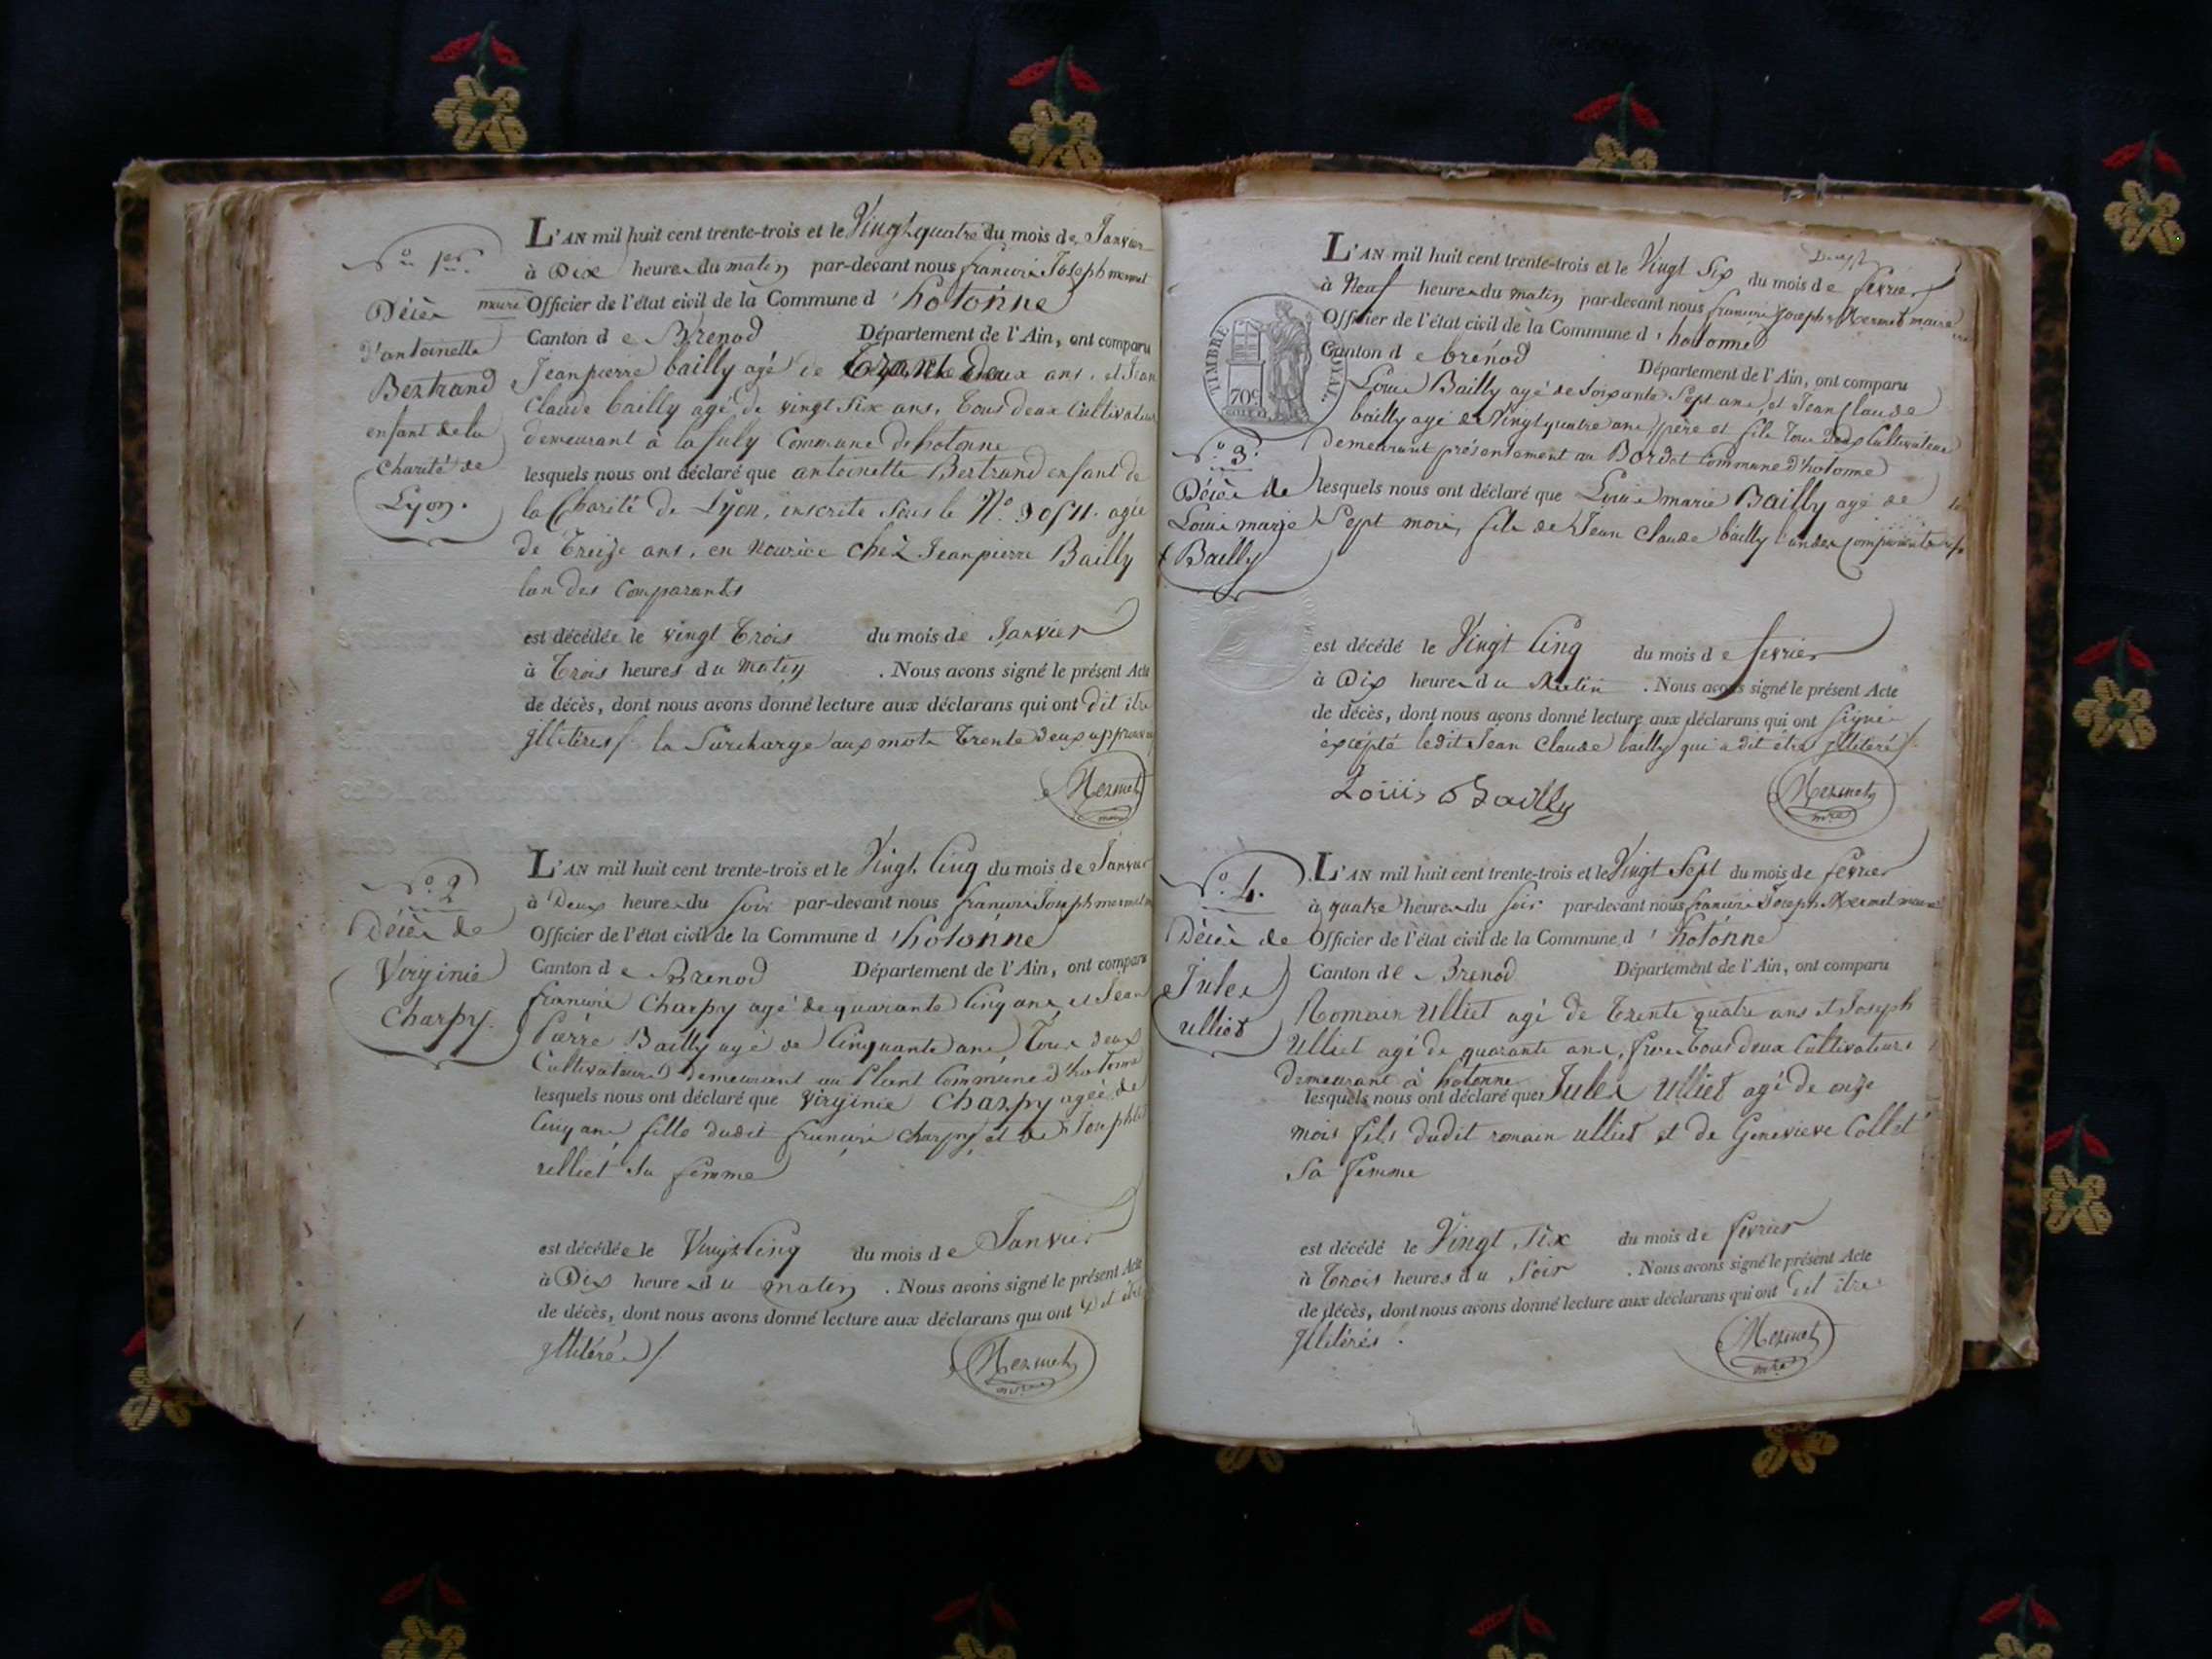 N.° 1er.
Décès
d'antoinette
Bertrand
enfant de la
Charité de
Lyon.
L'AN mil huit cent trente-trois et le Vingt quatre du mois de Janvier
à Dix heures du matin par-devant nous françois Joseph mermet
maire Officier de l'état civil de la Commune d'hotonne
Canton de Brenod Département de l'Ain, ont comparu
Jean pierre bailly agé de Trente Deux ans, et Jean
Claude bailly agé de vingt Six ans, tous deux Cultivateurs
demeurant à la Commune de hotonne
lesquels nous ont déclaré que antoinette Bertrand enfant de
la Charité de Lyon, inscrite sous le N.° agée
de treize ans, en nourice chez Jean pierre Bailly
lun des Comparants
est décédée le vingt Trois du mois de Janvier
à Trois heures du matin . Nous avons signé le présent Acte
de décès, dont nous avons donné lecture aux déclarans qui ont dit itre
jlliterés/. la Surcharge aux mots trente deux
Mermet
N.° 2
Décès de
Virginie
Charpy.
L'AN mil huit cent trente-trois et le Vingt Cinq du mois de Janvier
à Deux heures du soir par-devant nous françois Joseph mermet
Officier de l'état civil de la Commune d'hotonne
Canton de Brenod Département de l'Ain, ont comparu
françois Charpy agé de quarante Cinq ans, et Jean
Pierre Bailly agé de Cinquante ans Tous deux
Cultivateurs demeurant au Plant Commune d'hotonne
lesquels nous ont déclaré que Virginie Charpy agée de
Cinq ans fille dudit françois Charpy et de
ulliet sa femme
est décédée le Vingt Cinq du mois de Janvier
à Dix heures du matin . Nous avons signé le présent Acte
de décès, dont nous avons donné lecture aux déclarans qui ont Dit itre
jlliterés/.
Mermet
mre
TIMBRE ROYAL
70c
N.° 3.
Décès de
Louis marie
Bailly
L'AN mil huit cent trente-trois et le Vingt Six du mois de fevrier
à Neuf heures du matin par-devant nous françois joseph Mermet maire
Officier de l'état civil de la Commune d'hotonne
Canton de brénod Département de l'Ain, ont comparu
Louis Bailly agé de Soixante Sept ans, et Jean Claude
bailly agé de Vingt quatre ans, père et fils Tous Deux Cultivateurs
Demeurant présentement au Bordet Commune d'hotonne
lesquels nous ont déclaré que Louis marie Bailly agé de
Sept mois, fils de Jean Claude bailly l'un des Comparants
est décédé le Vingt Cinq du mois de fevrier
à Dix heures du Matin . Nous avons signé le présent Acte
de décès, dont nous avons donné lecture aux déclarans qui ont signé
éxcépté ledit Jean Claude bailly qui a dit être jlliteré/.
Louis Bailly
Mermet
mre
N.° 4.
Décès de
Jules
ulliet
L'AN mil huit cent trente-trois et le Vingt Sept du mois de fevrier
à quatre heures du soir par-devant nous françois Joseph Mermet maire
Officier de l'état civil de la Commune d'hotonne
Canton de Brenod Département de l'Ain, ont comparu
Romain Ulliet agé de Trente quatre ans et Joseph
Ulliet agé de quarante ans, freres tous deux Cultivateurs
Demeurant à hotonne
lesquels nous ont déclaré que Jules Ulliet agé de onze
mois fils dudit romain ulliet et de Genevieve Collet
sa femme
est décédé le Vingt Six du mois de fevrier
à Trois heures du Soir . Nous avons signé le présent Acte
de décès, dont nous avons donné lecture aux déclarans qui ont Dit itre
jlliterés.
Mermet
mre